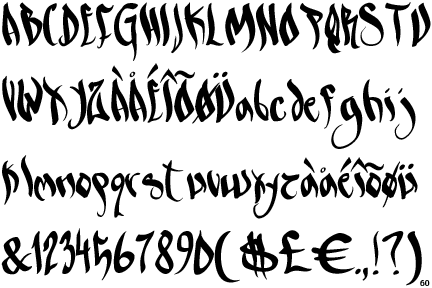 ABCDEFGHIJKLMNOPQRSTU
VWXYZÀÅÉÎÕØÜabcdefghij
klmnopqrstuvwxyzàåéîõøü
&1234567890($£€.,!?)
60